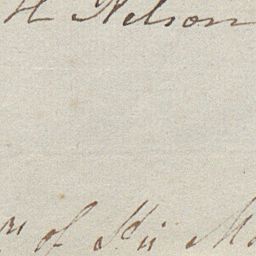 H Nelson
of His Ma